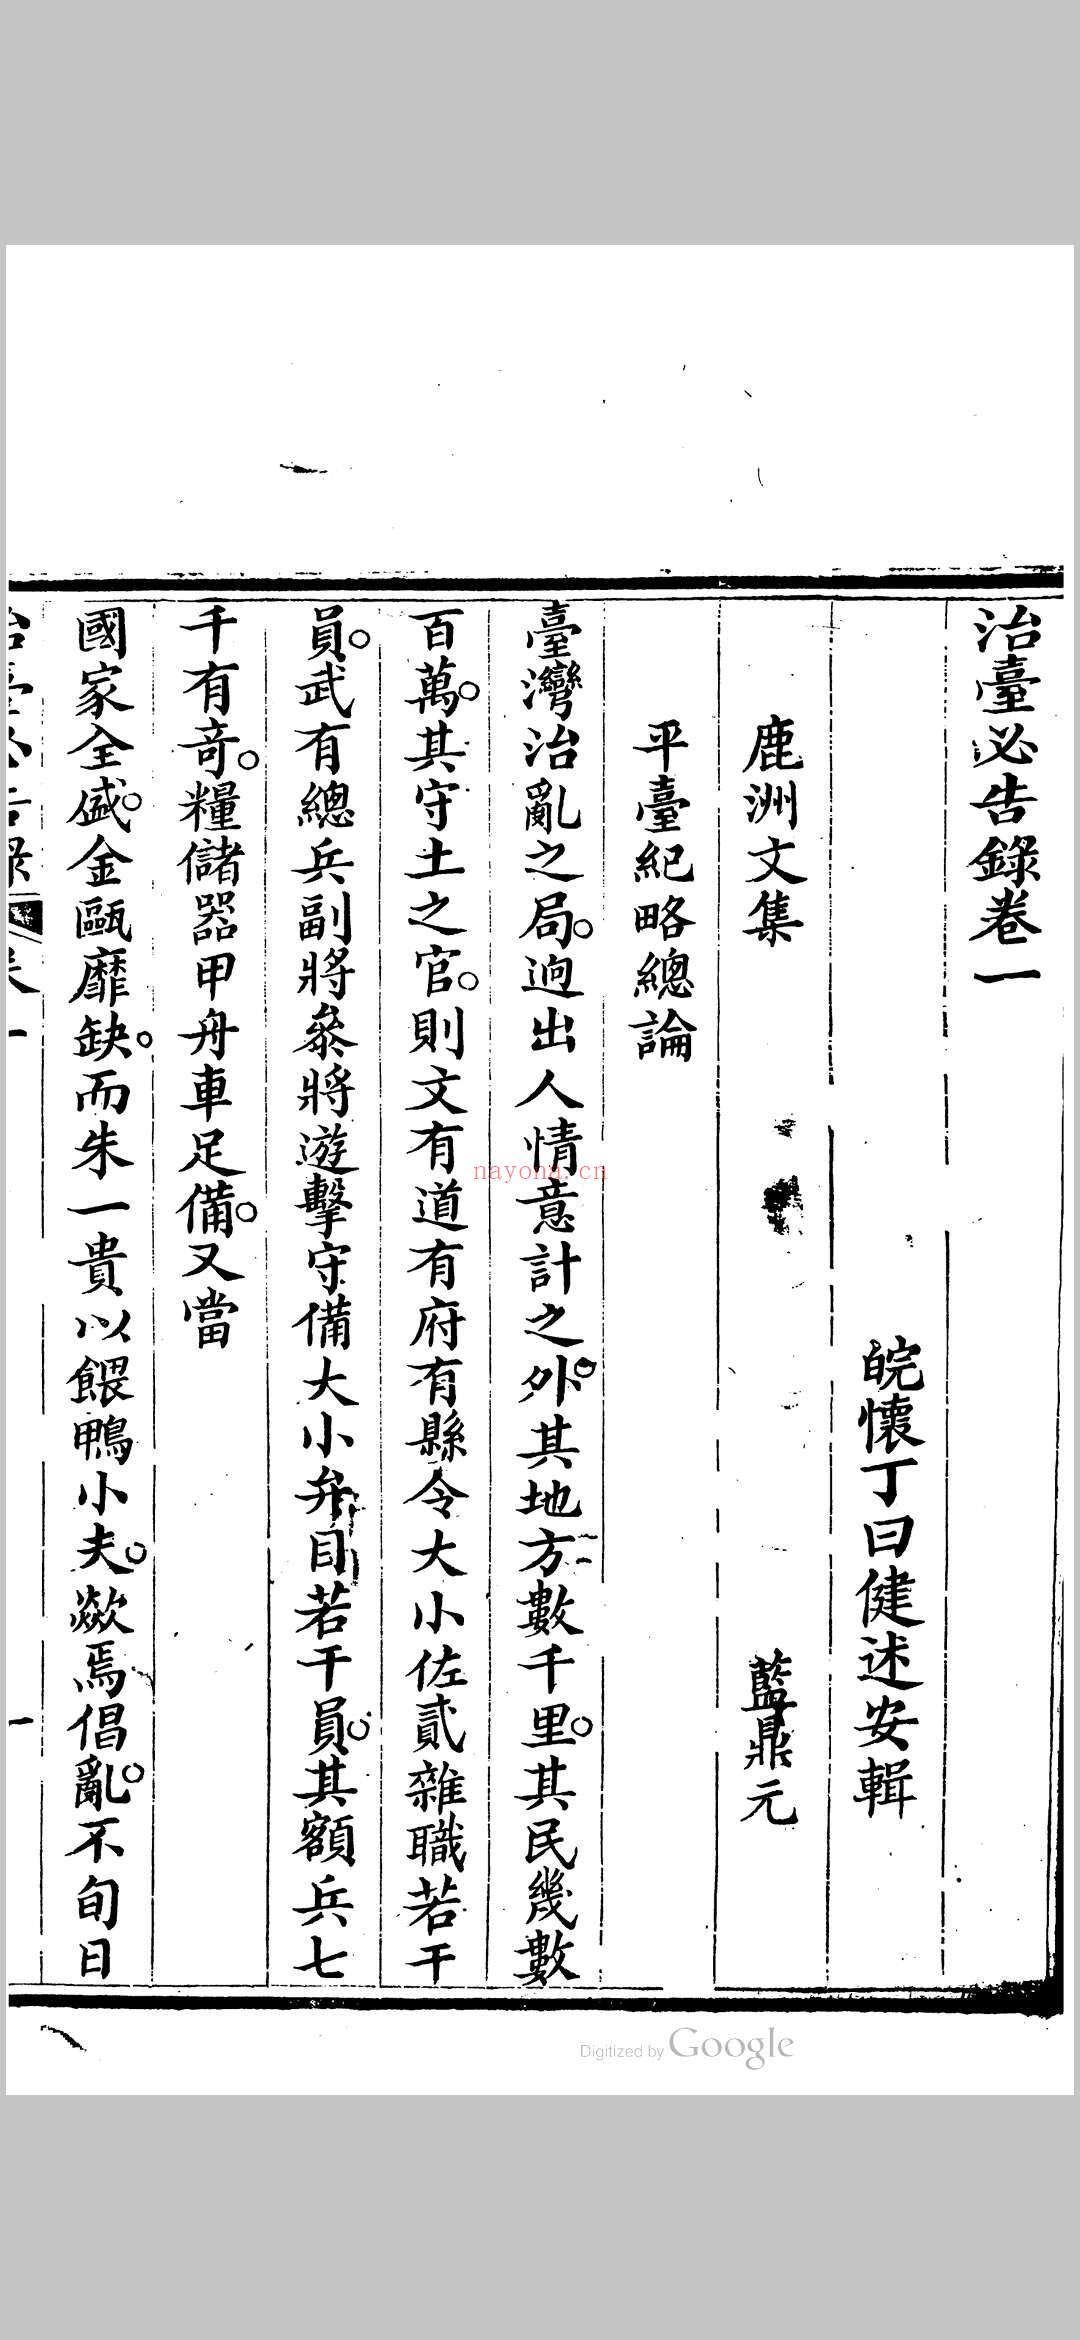 治臺必告錄卷一
皖懷丁曰健述安輯
鹿洲文集 藍鼎元
平臺紀略總論
臺灣治亂之局。逈出人情意計之外。其地方數千里。其民幾數
百萬。其守土之官。則文有道有府有縣令大小佐貳雜職若干
員。武有總兵副將叅將遊擊守備大小弁目若干員。其額兵七
千有竒。糧儲器甲舟車足備。又當
國家全盛。金甌靡缺。而朱一貴以餵鴨小夫。歘焉倡亂。不旬日
治臺必告錄 卷一 一
nayona.cn
Digitized by Google